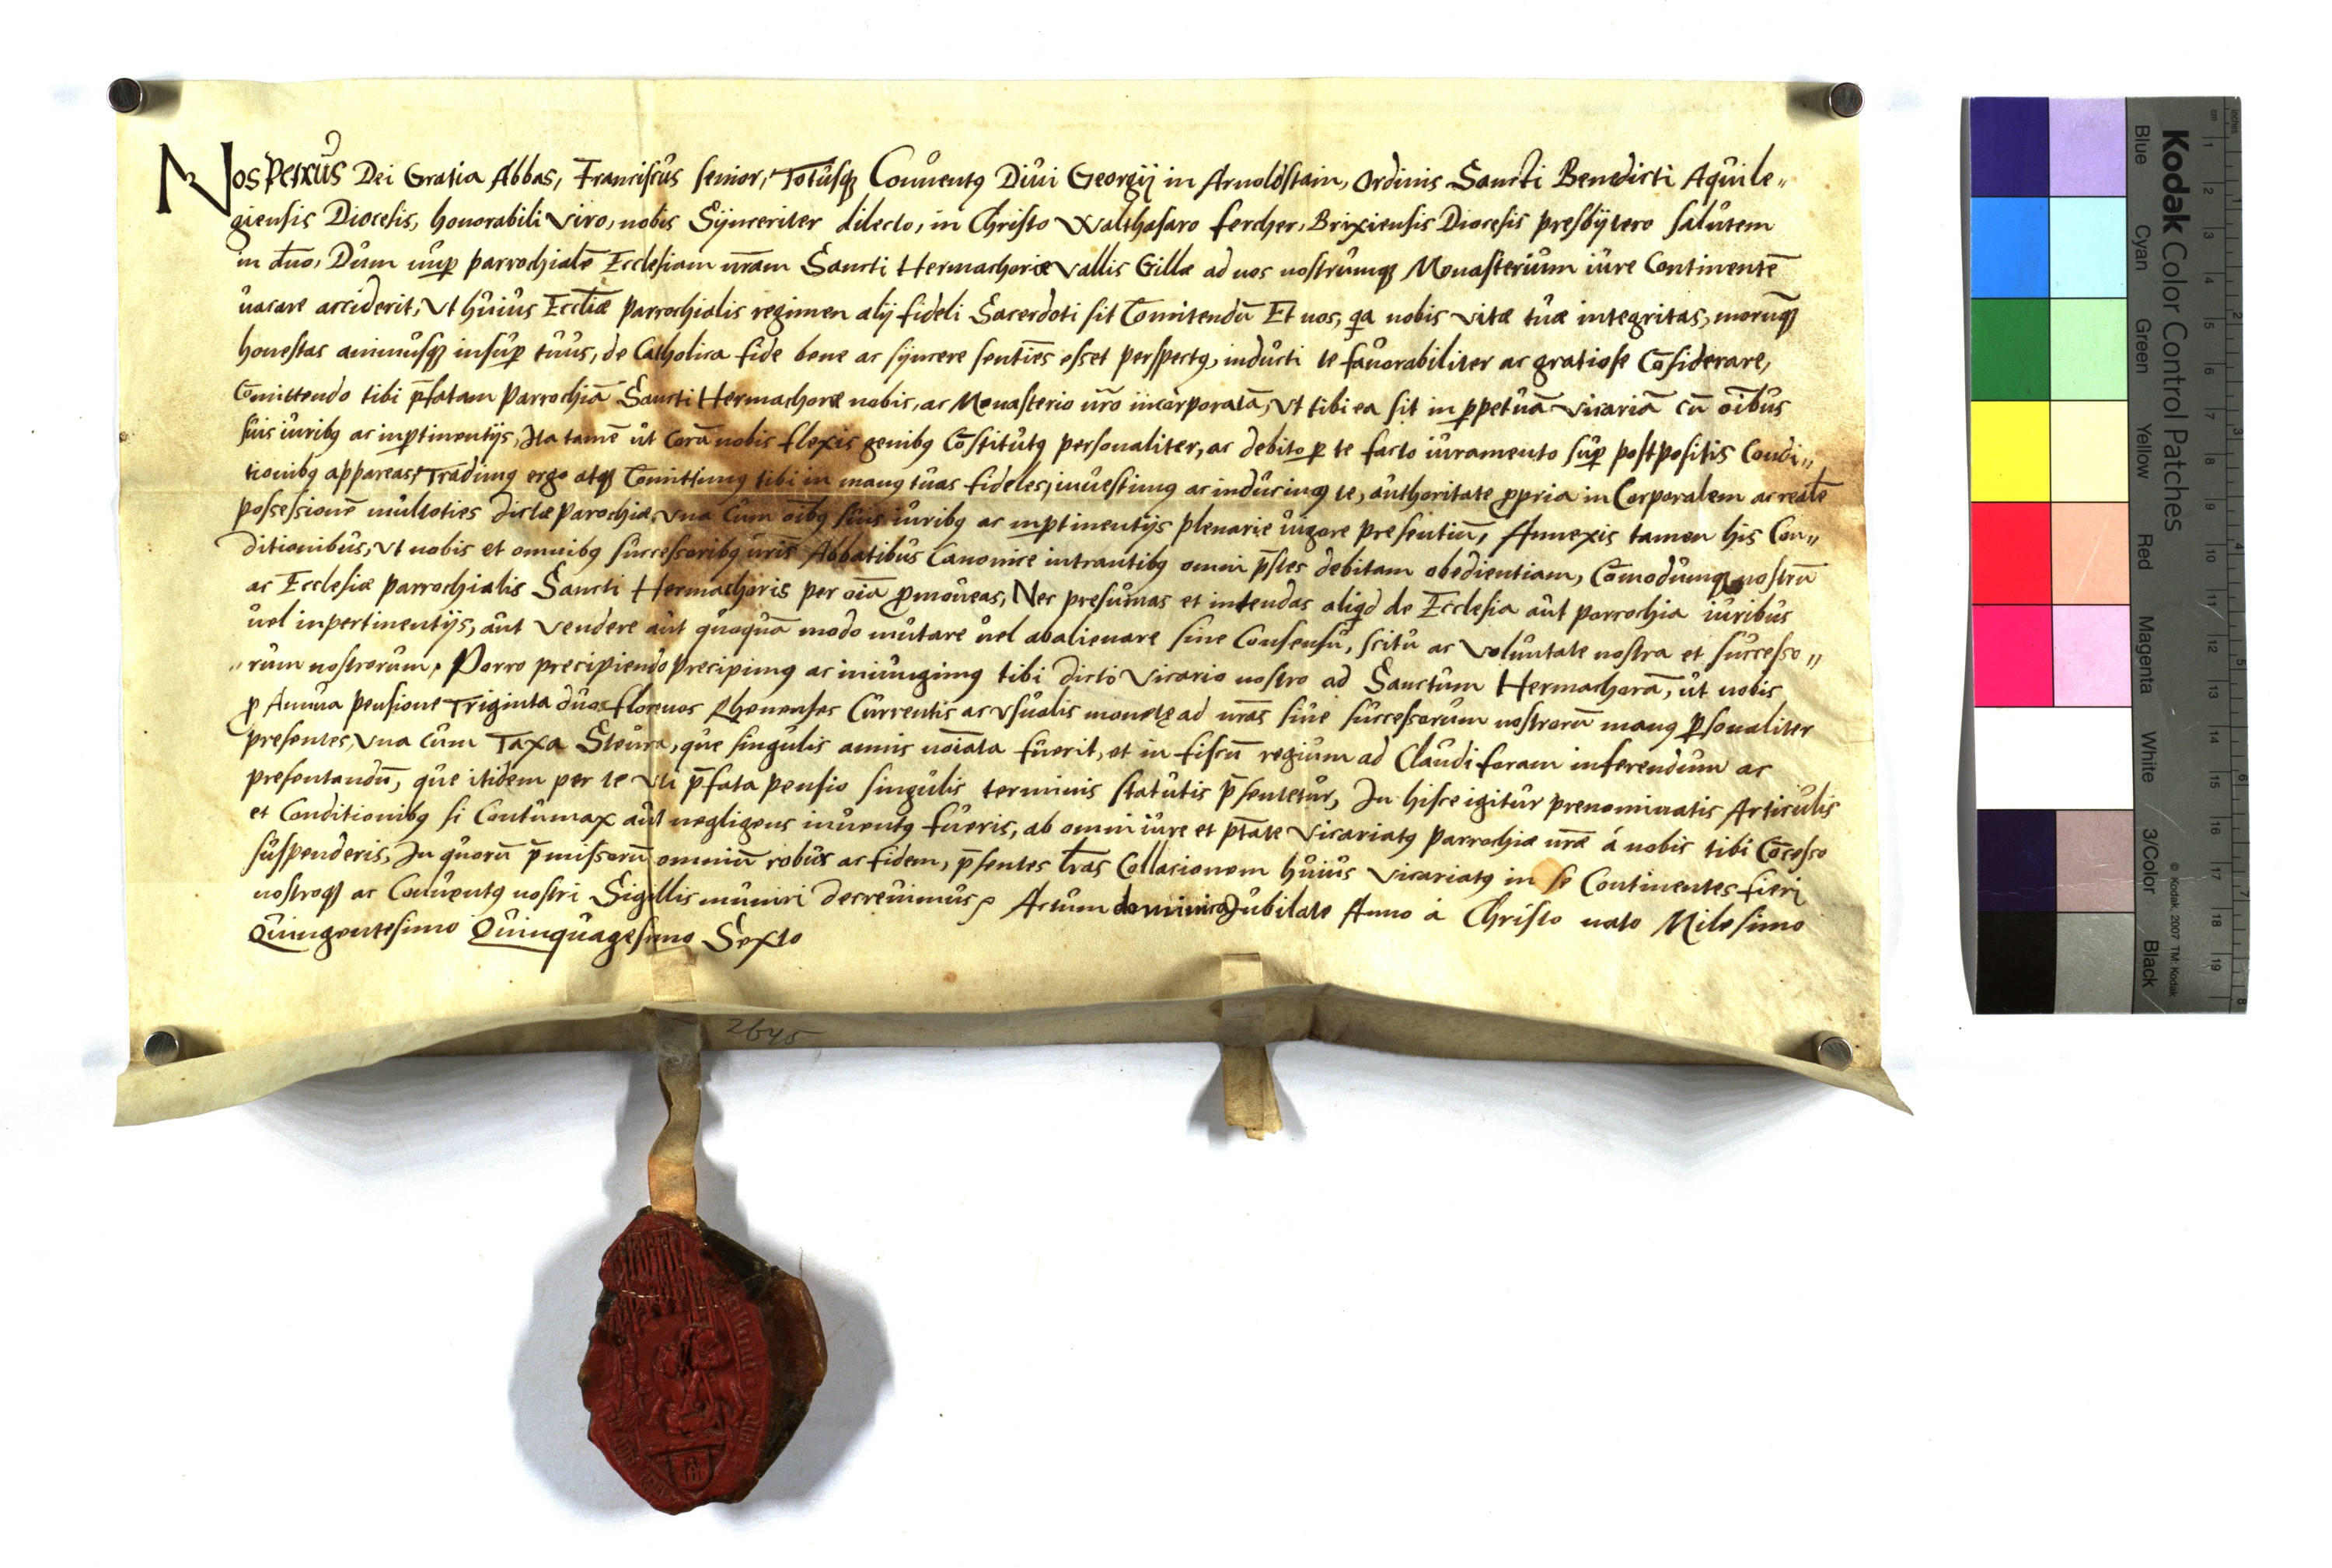 Nos Petrus Dei Gratia Abbas, Franciscus senior, Totusq₃ Conuentꝰ Diui Georgij in Arnoldstain, Ordinis Sancti Benedicti Aquile„
giensis Diocesis, honorabili viro, nobis Sÿnceriter dilecto, in Christo Walthasaro fercher, Brixiensis Diocesis presbÿtero salutem
in dn̄o, Dum nuꝑ parrochialē Ecclesiam nrām Sancti Hermachoræ vallis Gillæ ad nos nostrumq₃ Monasterium iure Continentē
uacare acciderit, Vt huius Eccliǣ parrochialis regimen alij fideli Sacerdoti sit Com̄itendū Et nos, qa nobis vitæ tuæ integritas, morumq₃
honestas animusq₃ insuꝑ tuus, de Catholica fide bene ac sÿncere sentiēs esset perspectꝰ, inducti te fauorabiliter ac gratiose Cōsiderare,
Com̄ittendo tibi p̄fatam parrochiā Sancti Hermachoræ nobis, ac Monasterio nr̄o incorporatā, Vt tibi ea sit in ꝑpetuā vicariā cū oībus
suis iuribꝰ ac inꝑtinentijs, Ita tamē ut Corā nobis flexis genibꝰ Cōstitutꝰ personaliter, ac debito ꝑ te facto iuramento suꝑ postpositis Condi„
tionibꝰ appareas, Tradimꝰ ergo atq₃ Com̄ittimꝰ tibi in manꝰ tuas fideles, inuestimꝰ ac inducimꝰ te, authoritate ꝓpria in Corporalem ac realē
possessionē multoties dictæ parochiæ, vna cum oībꝰ suis iuribꝰ ac inꝑtinentijs plenarie uigore presentiū, Annexis tamen his Con„
ditionibus, Vt nobis et omnibꝰ successoribꝰ nrīs Abbatibus Canonice intrantibꝰ omni p̄stes debitam obedientiam, Com̄odumq₃ nostrū
ac Ecclesiæ parrochialis Sancti Hermachoris per oīa ꝓmoueas, Nec presumas et intendas aliqd de Ecclesia aut parrochia iuribus
uel inpertinentijs, aut vendere aut quoquā modo mutare uel abalienare sine Consensu, scitu ac voluntate nostra et successo„
„rum nostrorum. Porro precipiendo precipimꝰ ac iniungimꝰ tibi dicto vicario nostro ad Sanctum Hermachorā, ut nobis
ꝓ Annua pensione Triginta duos florenos Rhenenses Currentis ac vsualis monetę ad nrās siue successorum nostrorū manꝰ ꝑsonaliter
presentes, vna cum Taxa Steura, que singulis annis noīata fuerit, et in fiscū regium ad Claudiforam inferendum ac
presentandū, que itidem per te vti p̄fata pensio singulis terminis statutis p̄sentetur, In hisce igitur prenominatis Articulis
et Conditionibꝰ si Contumax aut negligens inuentꝰ fueris, ab omni iure et ptāte vicariatꝰ parrochiæ nrǣ á nobis tibi Cōcesso
suspenderis, In quorū p̄missorū omniū robur ac fidem, p̄sentes lrās Collacionem huius vicariatꝰ in se Continentes fieri
nostroq₃ ac Conuentꝰ nostri Sigillis muniri decreuimus, Actum dominica Jubilate Anno á Christo nato Milesimo
Quingentesimo Quinquagesimo Sexto
2645
Kodak Color Control Patches
Blue Cyan Green Yellow Red Magenta White 3/Color Black
© Kodak, 2007 TM: Kodak
inches 1 2 3 4 5 6 7 8
cm 1 2 3 4 5 6 7 8 9 10 11 12 13 14 15 16 17 18 19